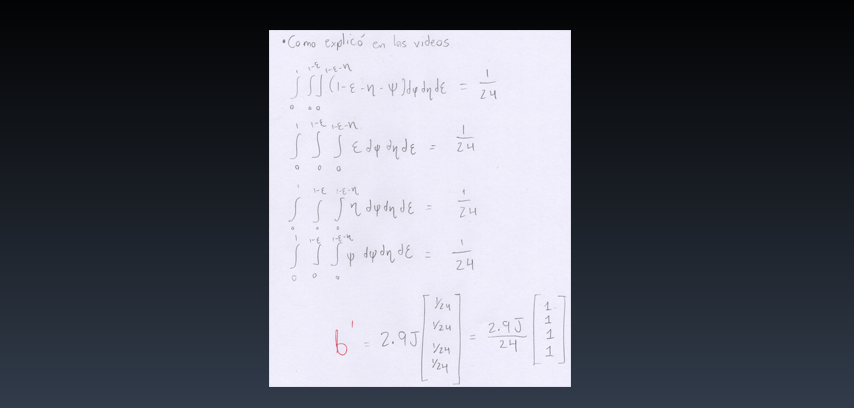 • Como explicó en los videos
∫₀¹ ∫₀^(1-ε) ∫₀^(1-ε-η) (1-ε-η-ψ) dψ dη dε = 1/24
∫₀¹ ∫₀^(1-ε) ∫₀^(1-ε-η) ε dψ dη dε = 1/24
∫₀¹ ∫₀^(1-ε) ∫₀^(1-ε-η) η dψ dη dε = 1/24
∫₀¹ ∫₀^(1-ε) ∫₀^(1-ε-η) ψ dψ dη dε = 1/24
b' = 2.9J [1/24 1/24 1/24 1/24] = 2.9J/24 [1 1 1 1]